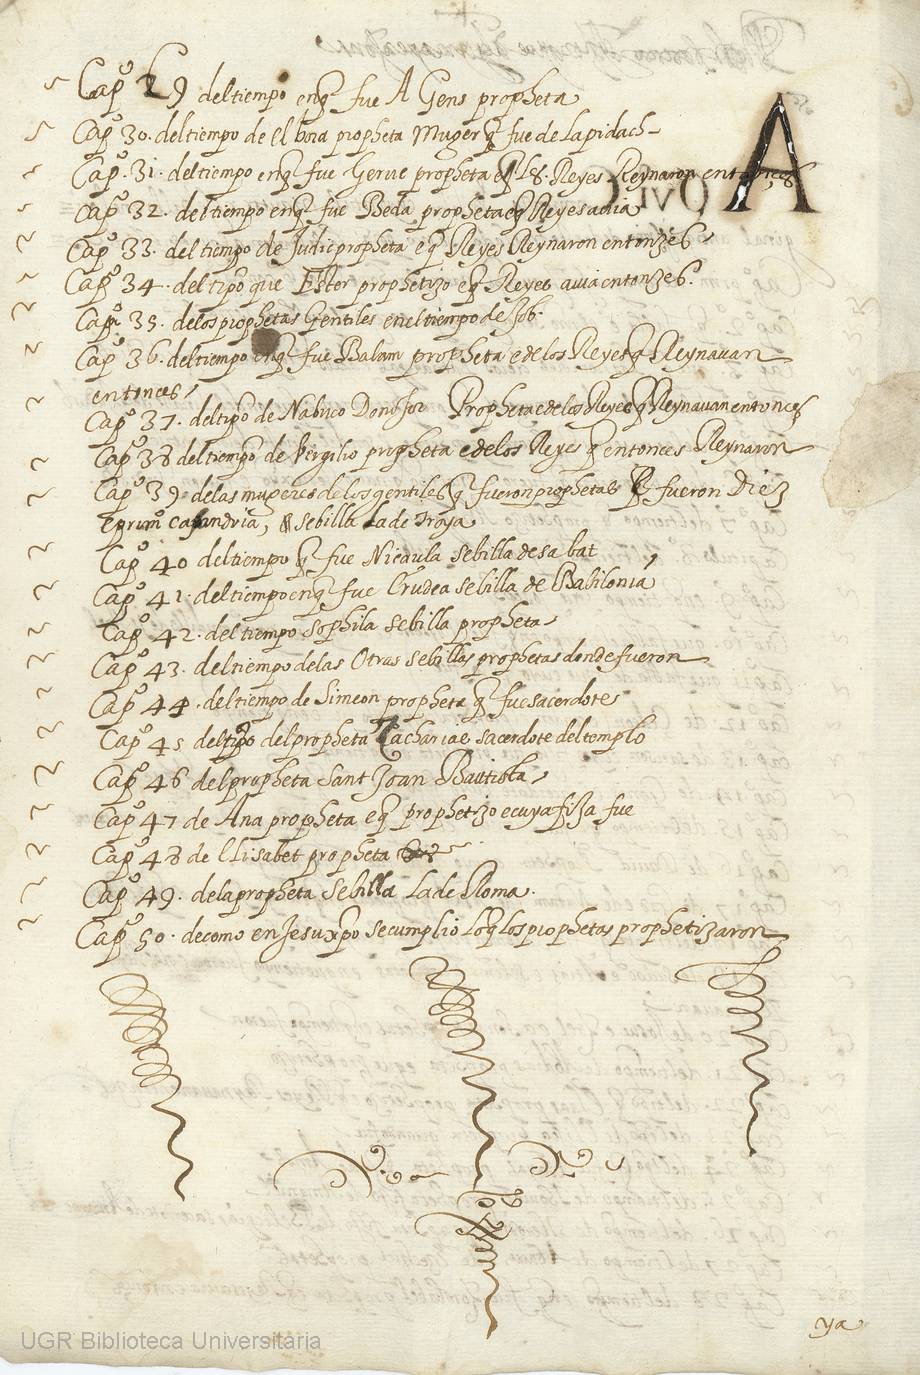 Capº 29 del tiempo enq̃ fue A Gens propheta
Capº 30. del tiempo de el bora propheta Muger q̃ fue de Lapidoch
Capº 31. del tiempo enq̃ fue Gerue propheta eq̃ Ls. Reyes Reynaron entonces
Capº 32. del tiempo enq̃ fue Beda propheta eq̃ Reyes auia
Capº 33. del tiempo de Judic propheta e q̃ Reyes Reynaron entonzes
Capº 34. del tipõ que Ester prophetizo eq̃ Reyes auia entonzes.
Capº 35. de los prophetas Gentiles en el tiempo de Job.
Capº 36. del tiempo enq̃ fue Balam propheta e de los Reyes q̃ Reynauan
entonces
Capº 37. del tipõ de Nabuco Donosor Propheta e de los Reyes q̃ Reynauan entonces
Capº 38 del tiempo de Virgilio propheta e de los Reyes q̃ entonces Reynaron
Capº 39. de las mugeres de los gentiles q̃ fueron prophetas q̃ fueron Diez
e prim casandria, sebilla La de Troya
Capº 40 del tiempo q̃ fue Nicaula sebilla de sabat
Capº 41. del tiempo enq̃ fue Erudea sebilla de Babilonia
Capº 42. del tiempo sophila sebilla propheta
Capº 43. del tiempo de las Otras sebillas prophetas donde fueron
Capº 44. del tiempo de Simeon propheta q̃ fue sacerdote
Capº 45 del tipõ del propheta Zacharias sacerdote del templo
Capº 46 del propheta Sant Joan Bautista
Capº 47 de Ana propheta eq̃ prophetizo e cuya fija fue
Capº 48 de Elisabet propheta
Capº 49. de la propheta Sebilla La de Roma.
Capº 50. de como en Jesuxpõ se cumplio Lo q̃ los prophetas prophetizaron
ya
UGR Biblioteca Universitaria